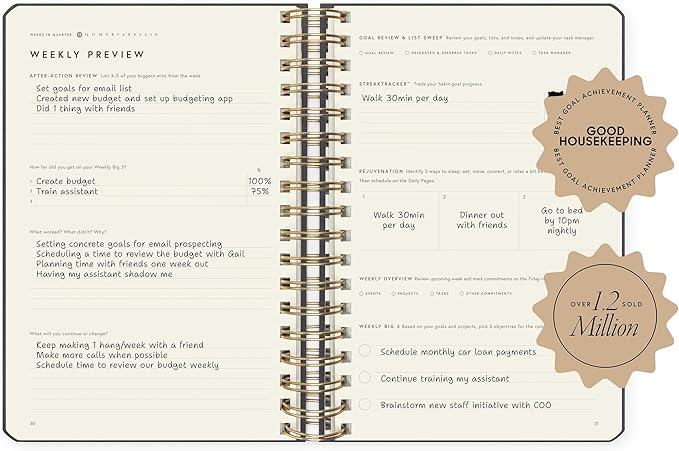 WEEKS IN QUARTER 13 12 11 10 9 8 7 6 5 4 3 2 1 0
WEEKLY PREVIEW
AFTER-ACTION REVIEW List 3–5 of your biggest wins from the week
Set goals for email list
Created new budget and set up budgeting app
Did 1 thing with friends
How far did you get on your Weekly Big 3?
%
1 Create budget 100%
2 Train assistant 75%
3
What worked? What didn't? Why?
Setting concrete goals for email prospecting
Scheduling a time to review the budget with Gail
Planning time with friends one week out
Having my assistant shadow me
What will you continue or change?
Keep making 1 hang/week with a friend
Make more calls when possible
Schedule time to review our budget weekly
30
GOAL REVIEW & LIST SWEEP Review your goals, lists, and notes, and update your task manager.
GOAL REVIEW DELEGATED & DEFERRED TASKS DAILY NOTES TASK MANAGER
STREAKTRACKER™ Track your habit-goal progress.
Walk 30min per day
REJUVENATION Identify 3 ways to sleep, eat, move, connect, or relax a bit
Then schedule on the Daily Pages.
1 2 3
Walk 30min
per day
Dinner out
with friends
Go to bed
by 10pm
nightly
WEEKLY OVERVIEW Review upcoming week and mark commitments on the 7-day
EVENTS PROJECTS TASKS OTHER COMMITMENTS
WEEKLY BIG 3 Based on your goals and projects, pick 3 objectives for the
Schedule monthly car loan payments
Continue training my assistant
Brainstorm new staff initiative with COO
31
BEST GOAL ACHIEVEMENT PLANNER
GOOD
HOUSEKEEPING
BEST GOAL ACHIEVEMENT PLANNER
OVER 1.2 SOLD
Million